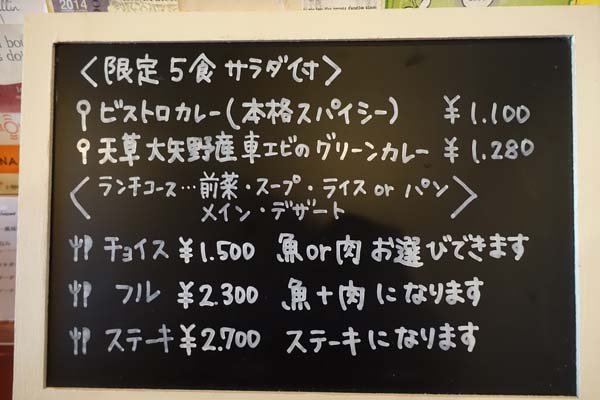 2014
〈限定5食 サラダ付〉
ビストロカレー(本格スパイシー) ¥1.100
天草大矢野産車エビのグリーンカレー ¥1.280
〈ランチコース…前菜・スープ・ライス or パン
メイン・デザート〉
チョイス ¥1.500 魚or肉 お選びできます
フル ¥2.300 魚+肉 になります
ステーキ ¥2.700 ステーキになります